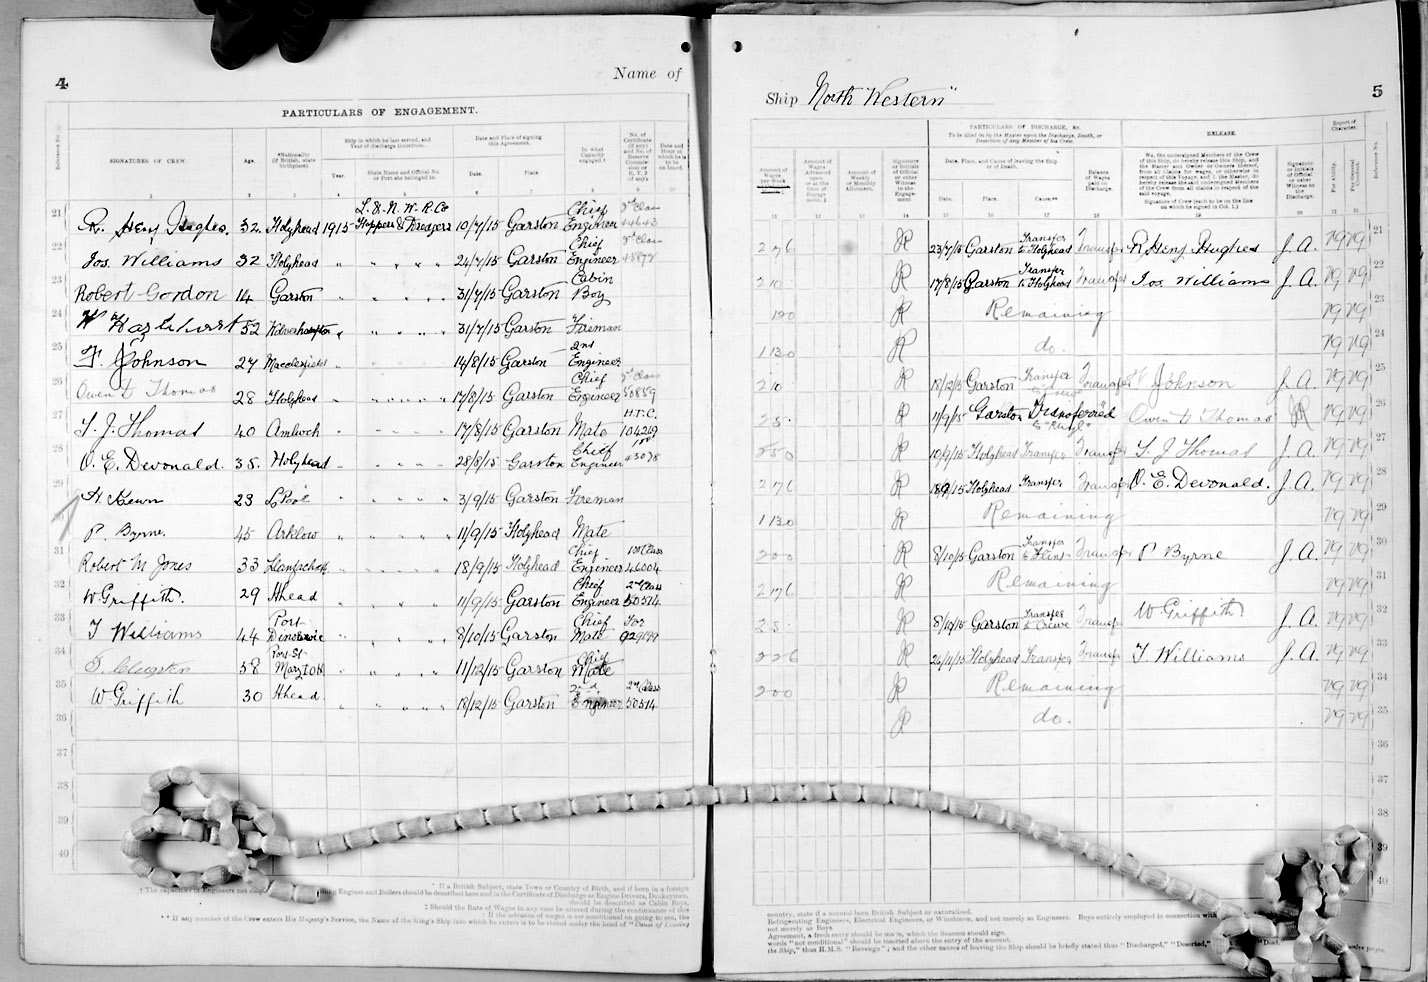 4
Name of
PARTICULARS OF ENGAGEMENT.
Reference No.
SIGNATURES OF CREW.
Age.
*Nationality
(if British, state
birthplace).
Ship in which he last served, and
Year of discharge therefrom.
Year.
State Name and Official No.
or Port she belonged to.
Date and Place of signing
this Agreement.
Date.
Place.
In what
Capacity
engaged.†
No. of
Certificate
(if any)
Date and
Hour at
which he is
to be
on board.
1 2 3 4 5 6 7 8 9 10
21 R. Heny Hughes. 32. Holyhead 1915 L. & N. W. R. Co Hoppers & Dredgers 10/7/15 Garston Chief Engineer 44643
22 Jos. Williams 32 Holyhead " " " " " 24/7/15 Garston Chief Engineer
23 Robert Gordon 14 Garston " " " " " 31/7/15 Garston Cabin Boy
24 W Hazlehurst 52 Wolverhampton " " " " " 31/7/15 Garston Fireman
25 F. Johnson 27 Macclesfield 14/8/15 Garston 2nd Engineer
26 Owen H Thomas 28 Holyhead 17/8/15 Garston Chief Engineer 50859
27 T. J. Thomas 40 Amlwch 17/8/15 Garston Mate H.T.C. 104269
28 O. E. Devonald. 35. Holyhead 28/8/15 Garston Chief Engineer 43078
29 23 L'Pool 3/9/15 Garston Fireman
P. Byrne. 45 Arklow " " " " " 11/9/15 Holyhead Mate
31 Robert M Jones 33 18/9/15 Holyhead Chief Engineer 1st Class 46004
32 W Griffith. 29 Hhead 11/9/15 Garston Chief Engineer 2nd Class 50514
33 T Williams 44 Port Dinorwic 8/10/15 Garston Chief Mate
34 58 Port St Mary IOM 11/12/15 Garston Chief Mate
35 W Griffith 30 Hhead 18/12/15 Garston 2nd Engineer 2nd Class 50514
36
37
38
39
40
* If a British Subject, state Town or Country of Birth, and if born in a foreign
‡ Should the Rate of Wages in any case be altered during the continuance of this
** If any member of the Crew enters His Majesty's Service, the Name of the King's Ship into which he enters is to be stated under the head of "Cause of Leaving
Ship North "Western"
5
PARTICULARS OF DISCHARGE, &c.
To be filled in by the Master upon the Discharge, Death, or
Desertion of any Member of his Crew.
RELEASE.
Report of
Character.
Amount of
Wages
per Week
Amount of
Wages
Advanced
Amount of
Weekly
or Monthly
Allotment.
Signature
or Initials
of Official
or other
Witness
to the
Engagement.
Date, Place, and Cause of leaving the Ship
or of Death.
Date.
Place.
Cause**
Balance of
Wages
paid on
Discharge.
We, the undersigned Members of the Crew
of this Ship, do hereby release this Ship, and
the Master and Owner or Owners thereof,
from all Claims for wages, or otherwise in
respect of this Voyage, and I, the Master, do
hereby release the undersigned Members of
the Crew from all claims in respect of the
said voyage.
Signature of Crew (each to be on the line
on which he signed in Col. 1.)
Signature
or Initials
of Official
or other
Witness to
the
Discharge.
For Ability.
For General
Conduct.
Reference No.
11 12 13 14 15 16 17 18 19 20 21 22
2 7 6 JR 23/7/15 Garston Transfer to Holyhead Transfer R Heny Hughes J. A. VG VG 21
2 10 JR 17/8/15 Garston Transfer to Holyhead Transfer Jos Williams J. A. VG VG 22
JR Remaining VG VG 23
1 13 0 JR do. VG VG 24
2 1 0 JR 18/12/15 Garston Transfer Transfer F Johnson J. A. VG VG 25
JR 11/9/15 Garston Transferred to "Rhyl" Owen H Thomas JR VG VG 26
JR 10/9/15 Holyhead Transfer Transfer T. J Thomas J. A. VG VG 27
2 7 6 JR 18/9/15 Holyhead Transfer Transfer O. E. Devonald. J. A. VG VG 28
1 13 0 JR Remaining VG VG 29
2 0 0 JR 8/10/15 Garston Transfer to Flint Transfer P Byrne J. A. VG VG 30
2 7 6 JR Remaining VG VG 31
JR Garston Transfer to Crewe Transfer W Griffith J. A. VG VG 32
JR 26/11/15 Holyhead Transfer Transfer T Williams J. A. VG VG 33
2 0 0 JR Remaining VG VG 34
JR do. VG VG 35
36
37
38
39
40
country, state if a natural born British Subject or naturalised.
Refrigerating Engineers, Electrical Engineers, or Winchmen, and not merely as Engineers. Boys entirely employed in connection with
not merely as Boys.
Agreement, a fresh entry should be made, which the Seamen should sign.
words "not conditional" should be inserted above the entry of the amount.
the Ship," thus H.M.S. "Revenge"; and the other causes of leaving the Ship should be briefly stated thus "Discharged," "Deserted,"